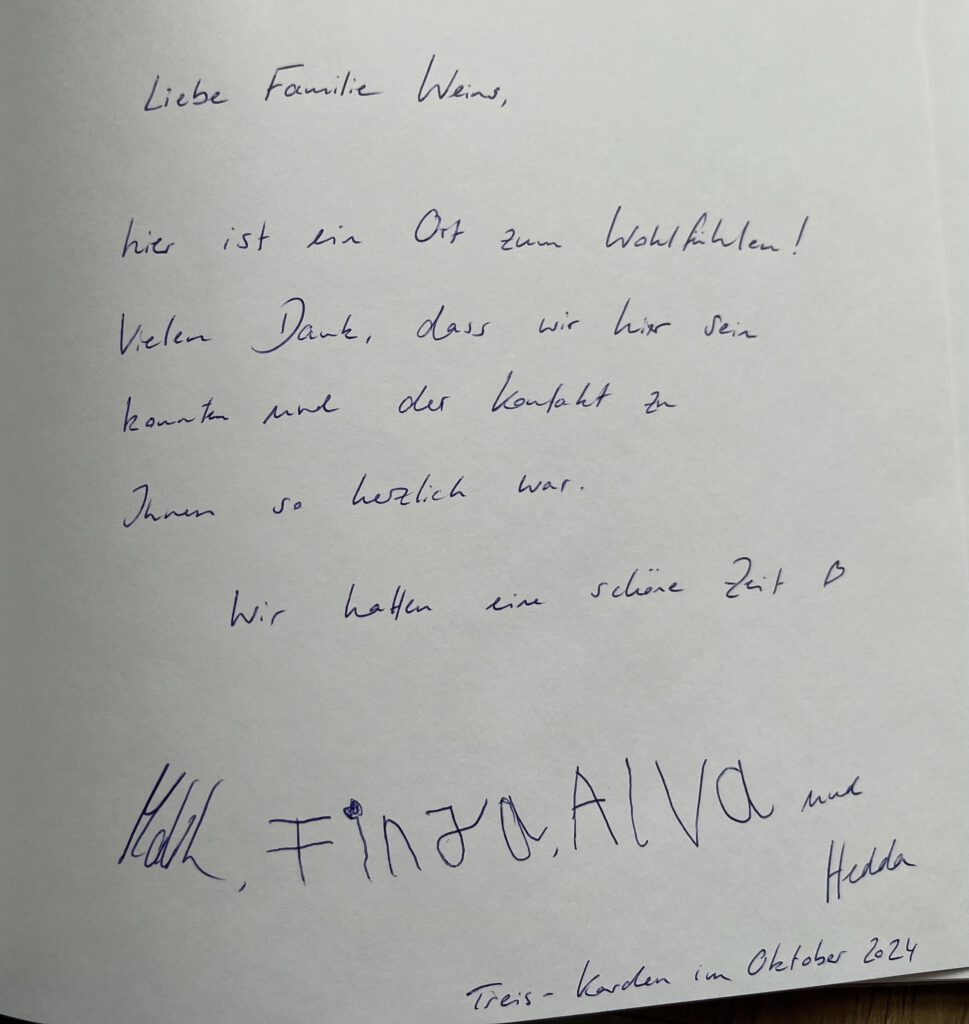 Liebe Familie Weins,
hier ist ein Ort zum Wohlfühlen!
Vielen Dank, dass wir hier sein
konnten und der Kontakt zu
Ihnen so herzlich war.
Wir hatten eine schöne Zeit
, Finja, Alva und
Hedda
Treis-Karden im Oktober 2024